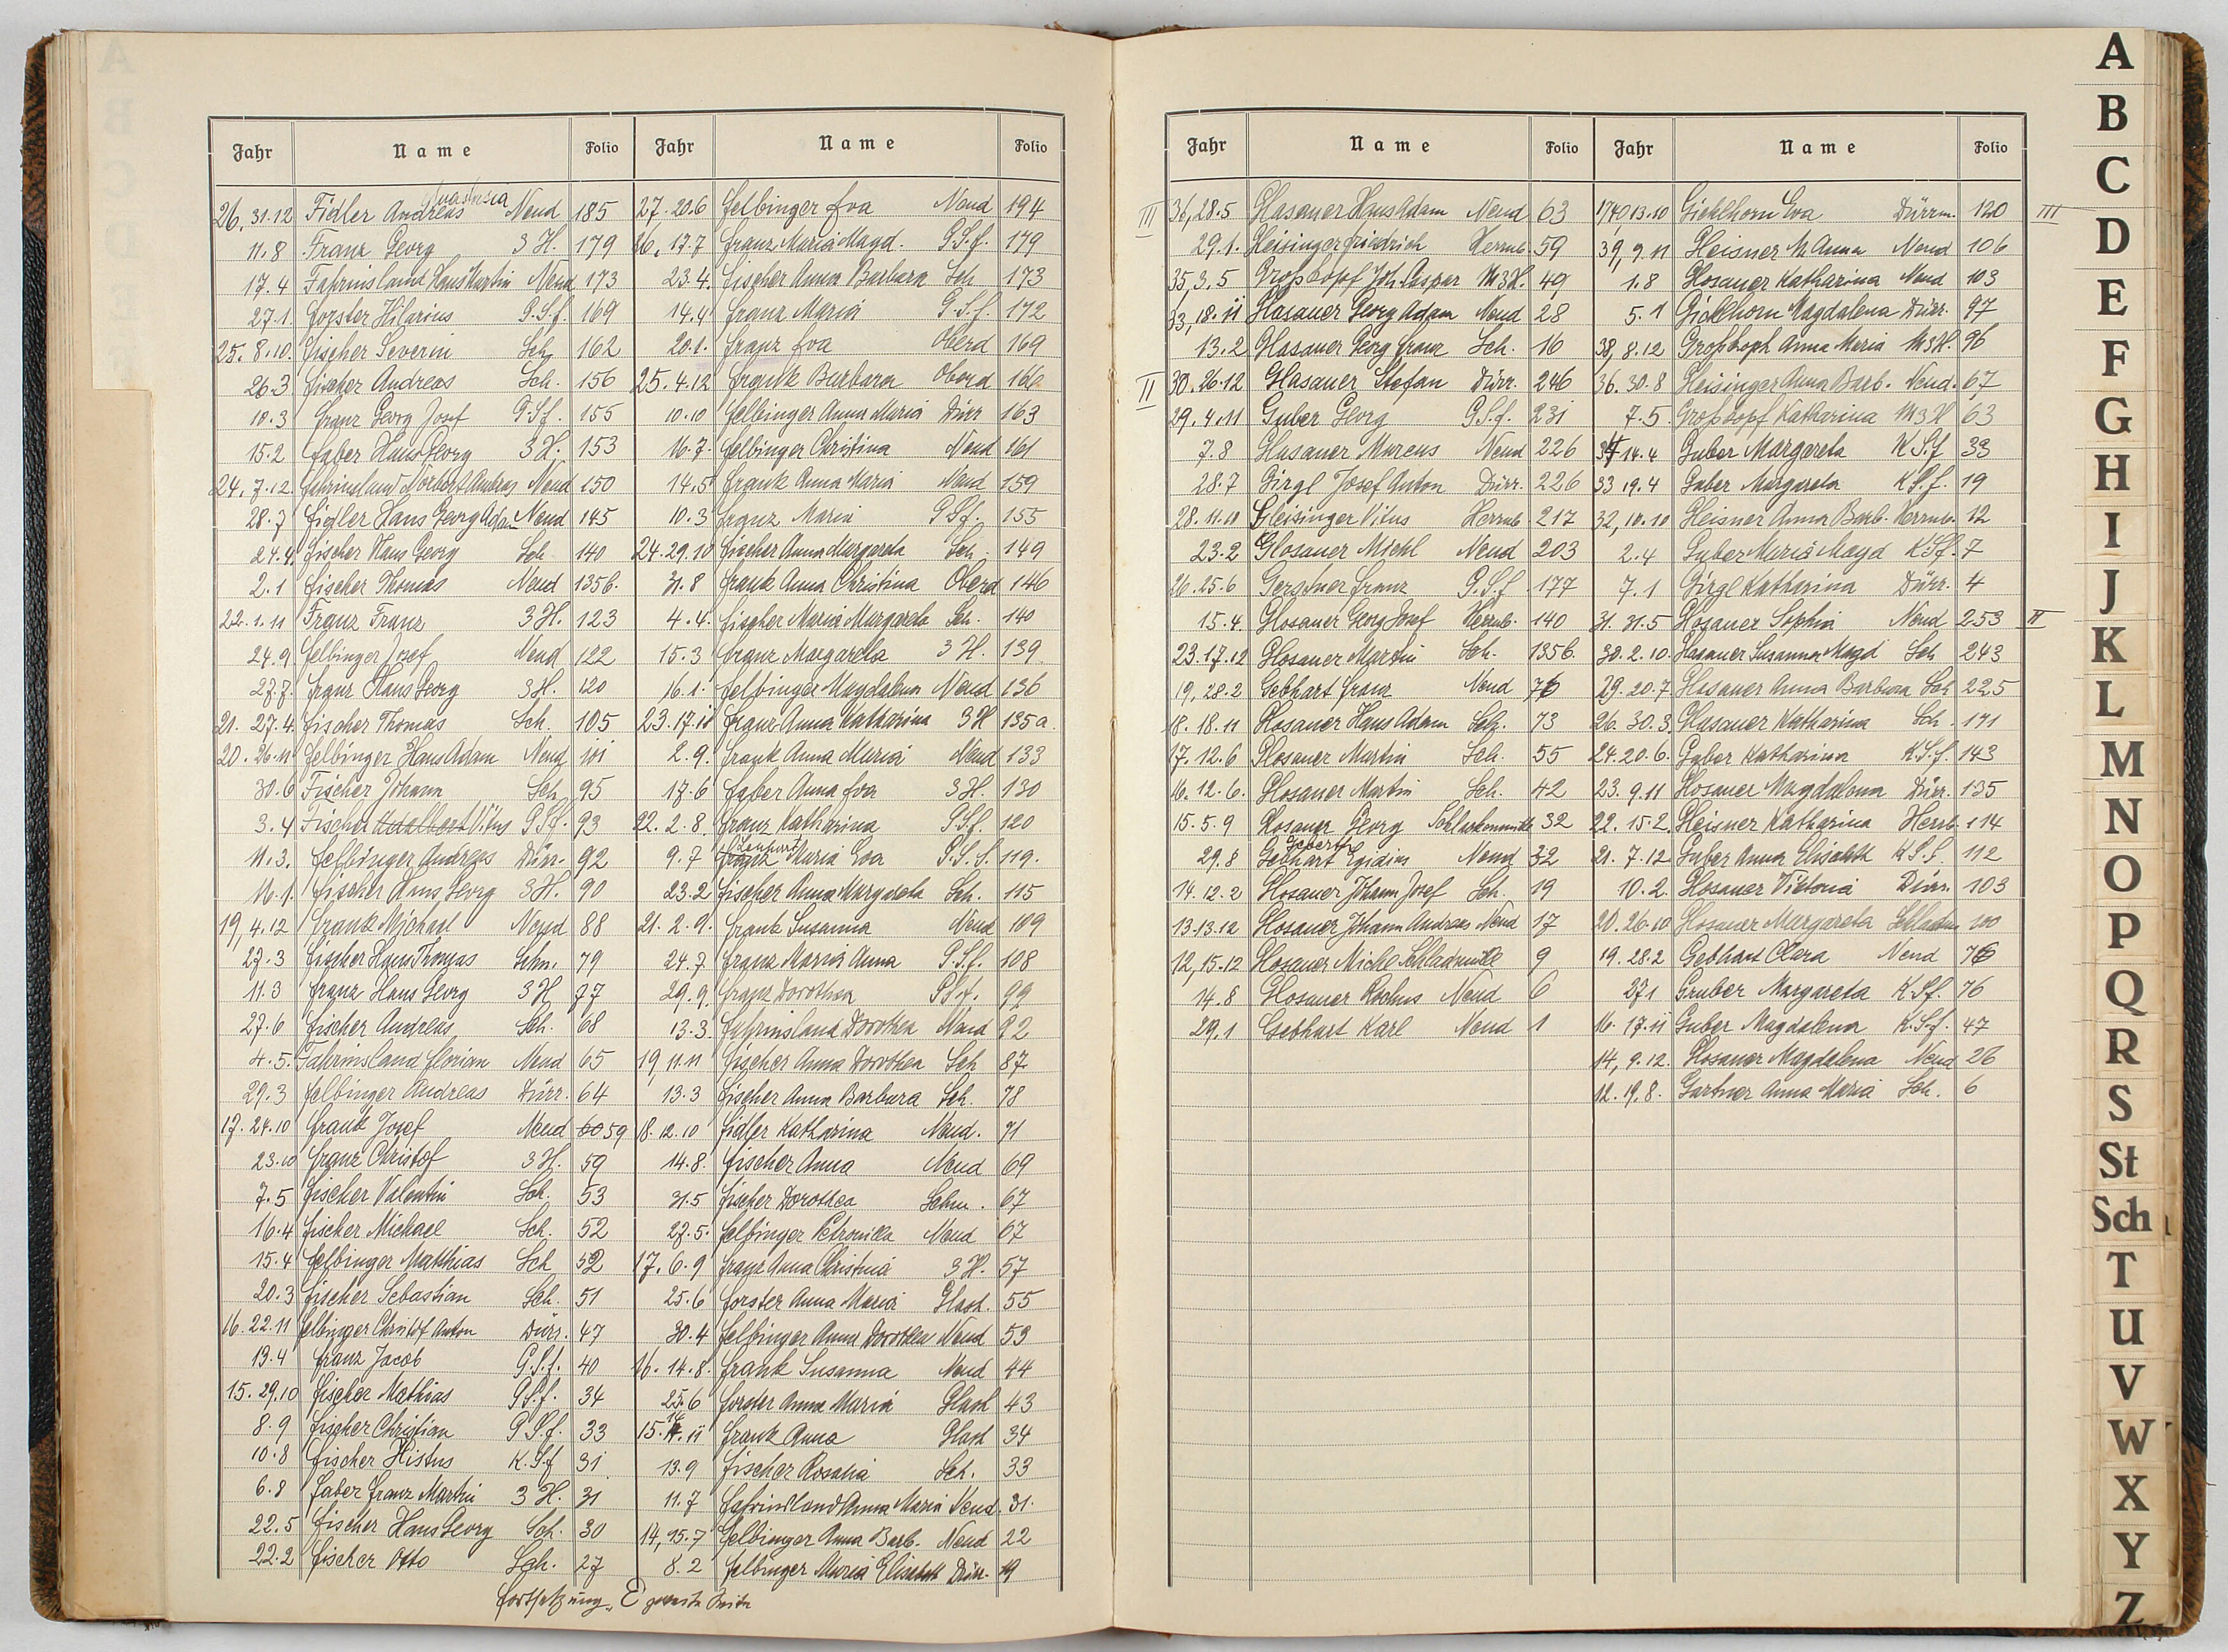 Jahr Name Folio Jahr Name Folio
Anastasia
26. 31.12 Fidler Andreas Neud 185
11.8 Franz Georg 3 H. 179
17.4 Fahrinsland Hans Martin Neud 173
27.1. Forster Hilarius G.S.f. 169
25. 8.10. Fischer Severin Sch. 162
26.3 Fischer Andreas Sch. 156
10.3 Franz Georg Josef G.Sf. 155
15.2 Faber Hans Georg 3 H. 153
24. 7.12. Fahrinsland Norbert Andreas Neud 150
28.7 Fidler Hans Georg Adam Neud 145
24.4 Fischer Hans Georg Sch 140
2.1 Fischer Thomas Neud 135b.
22. 1.11 Franz Franz 3 H. 123
24.9 Felbinger Josef Neud 122
27.7. Franz Hans Georg 3 H. 120
21. 27.4. Fischer Thomas Sch. 105
20. 26.11 Felbinger Hans Adam Neud 101
30.6 Fischer Johann Sch 95
3.4 Fischer Adalbert Vitus G.Sf. 93
11.3. Felbinger Andreas Dürr. 92
16.1. Fischer Hans Georg 3 H. 90
19, 4.12 Frank Michael Neud 88
27.3 Fischer Hans Thomas Schm. 79
11.3 Franz Hans Georg 3 H 77
27.6 Fischer Andreas Sch. 68
4.5. Fahrinsland Florian Neud 65
29.3 Felbinger Andreas Dürr. 64
17. 24.10 Frank Josef Neud 60 59
23.10 Franz Christof 3 H. 59
7.5 Fischer Valentin Sch. 53
16.4 Fischer Michael Sch. 52
15.4 Felbinger Matthias Sch 52
20.3 Fischer Sebastian Sch. 51
16. 22.11 Felbinger Christof Anton Dürr. 47
19.4 Franz Jacob G.S.f. 40
15. 29.10 Fischer Mathias G.S.f. 34
8.9 Fischer Christian G.S.f. 33
10.8 Fischer Histus K.S.f 31
6.8 Faber Franz Martin 3 H. 31
22.5 Fischer Hans Georg Sch. 30
22.2 Fischer Otto Sch. 27
27. 20.6 Felbinger Eva Neud 194
26, 17.7 Franz Maria Magd. G.S.f. 179
23.4. Fischer Anna Barbara Sch 173
14.4 Franz Maria G.S.f. 172
20.1. Franz Eva Oberd 169
25. 4.12 Frank Barbara Oberd 166
10.10 Felbinger Anna Maria Dürr 163
16.7. Felbinger Christina Neud 161
14.5 Frank Anna Maria Neud 159
10.3 Franz Maria G.Sf. 155
24. 29.10 Fischer Anna Margareta Sch. 149
31.8 Frank Anna Christina Oberd 146
4.4. Fischer Maria Margareta Sch. 140
15.3 Franz Margareta 3 H. 139
16.1. Felbinger Magdalena Neud 136
23. 17.11 Franz Anna Katharina 3 H 135a.
2.9. Frank Anna Maria Neud 133
17.6 Faber Anna Eva 3 H. 130
22. 2.8. Franz Katharina G.Sf. 120
9.7 Franz Maria Eva G.S.f. 119.
23.2 Fischer Anna Margareta Sch. 115
21. 2.9. Frank Susanna Neud 109
24.7 Franz Maria Anna G.S.f. 108
29.9. Franz Dorothea G.S.f. 99
13.3. Fahrinsland Dorothea Neud 92
19, 11.11 Fischer Anna Dorothea Sch 87
13.3 Fischer Anna Barbara Sch. 78
18. 12.10 Fidler Katharina Neud. 71
14.8. Fischer Anna Neud 69
31.5 Fischer Dorothea Schm. 67
27.5. Felbinger Petronilla Neud 67
17. 6.9 Franz Anna Christina 3 H. 57
25.6 Forster Anna Maria Glash. 55
30.4 Felbinger Anna Dorothea Neud 53
16. 14.8. Frank Susanna Neud 44
25.6 Forster Anna Maria Glash 43
15. 14.11 Frank Anna Glash 34
13.9 Fischer Rosalia Sch. 33
11.7 Fahrinsland Anna Maria Neud. 31.
14, 15.7 Felbinger Anna Barb. Neud 22
8.2 Felbinger Maria Elisabeth Dürr. 19
Fortsetzung E zweite Seite
Jahr Name Folio Jahr Name Folio
III 36, 28.5 Glasauer Hans Adam Neud 63
29.1. Gleisinger Friedrich Herrnb. 59
35, 3.5 Großkopf Joh. Caspar M3H. 49
33, 18.11 Glasauer Georg Adam Neud 28
13.2 Glasauer Georg Franz Sch. 16
II 30. 26.12 Glasauer Stefan Dürr. 246
29. 4.11 Guber Georg G.S.f. 231
7.8 Glasauer Marcus Neud 226
28.7 Girgl Josef Anton Dürr. 226
28. 11.10 Gleisinger Vitus Herrnb 217
23.2 Glosauer Michl Neud 203
26. 25.6 Gerstner Franz G.S.f 177
15.4. Glosauer Georg Josef Herrnb. 140
23. 17.12 Glosauer Martin Sch. 135b.
19, 28.2 Gebhart Franz Neud 76
18. 18.11 Glosauer Hans Adam Sch. 73
17. 12.6 Glosauer Martin Sch. 55
16. 12.6. Glosauer Martin Sch. 42
15. 5.9 Glosauer Georg 32
Geberth
29.8 Gebhart Egidius Neud 32
14. 12.2 Glosauer Johann Josef Sch. 19
13. 13.12 Glosauer Johann Andreas Neud 17
12, 15.12 Glosauer Michl Schladmülle 9
14.8 Glosauer Rochus Neud 6
29.1 Gebhart Karl Neud 1
1740 13.10 Gicklhorn Eva Dürrm. 120 III
39, 9.11 Gleisner M. Anna Neud 106
1.8 Glosauer Katharina Neud 103
5.1 Gicklhorn Magdalena Dürr. 97
38, 8.12 Großkoph Anna Maria M3H. 96
36. 30.8 Gleisinger Anna Barb. Neud. 67
7.5 Großkopf Katharina M3H 63
34 14.4 Guber Margareta K.S.f 33
33 19.4 Guber Margareta K.S.f. 19
32, 10.10 Gleisner Anna Barb. Herrnb. 12
2.4 Guber Maria Magd K.Sf. 7
7.1 Girgl Katharina Dürr. 4
31. 31.5 Glosauer Sophia Neud 253 II
30. 2.10. Glasauer Susanna Magd Sch 243
29. 20.7 Glasauer Anna Barbara Sch 225
26. 30.3. Glasauer Katharina Sch. 171
24. 20.6. Guber Katharina K.S.f. 143
23. 9.11 Glosauer Magdalena Dürr. 135
22. 15.2. Gleisner Katharina Herrb. 114
21. 7.12 Guber Anna Elisabeth K.S.f. 112
10.2. Glosauer Viktoria Dürr. 103
20. 26.10 Glosauer Margareta 100
19. 28.2 Gebhart Clara Neud 76
27.1 Gruber Margareta K.Sf. 76
16. 17.11 Guber Magdalena K.S.f. 47
14, 9.12. Glosauer Magdalena Neud 26
12. 19.8. Gartner Anna Maria Sch. 6
A
B
C
D
E
F
G
H
I
J
K
L
M
N
O
P
Q
R
S
St
Sch
T
U
V
W
X
Y
Z